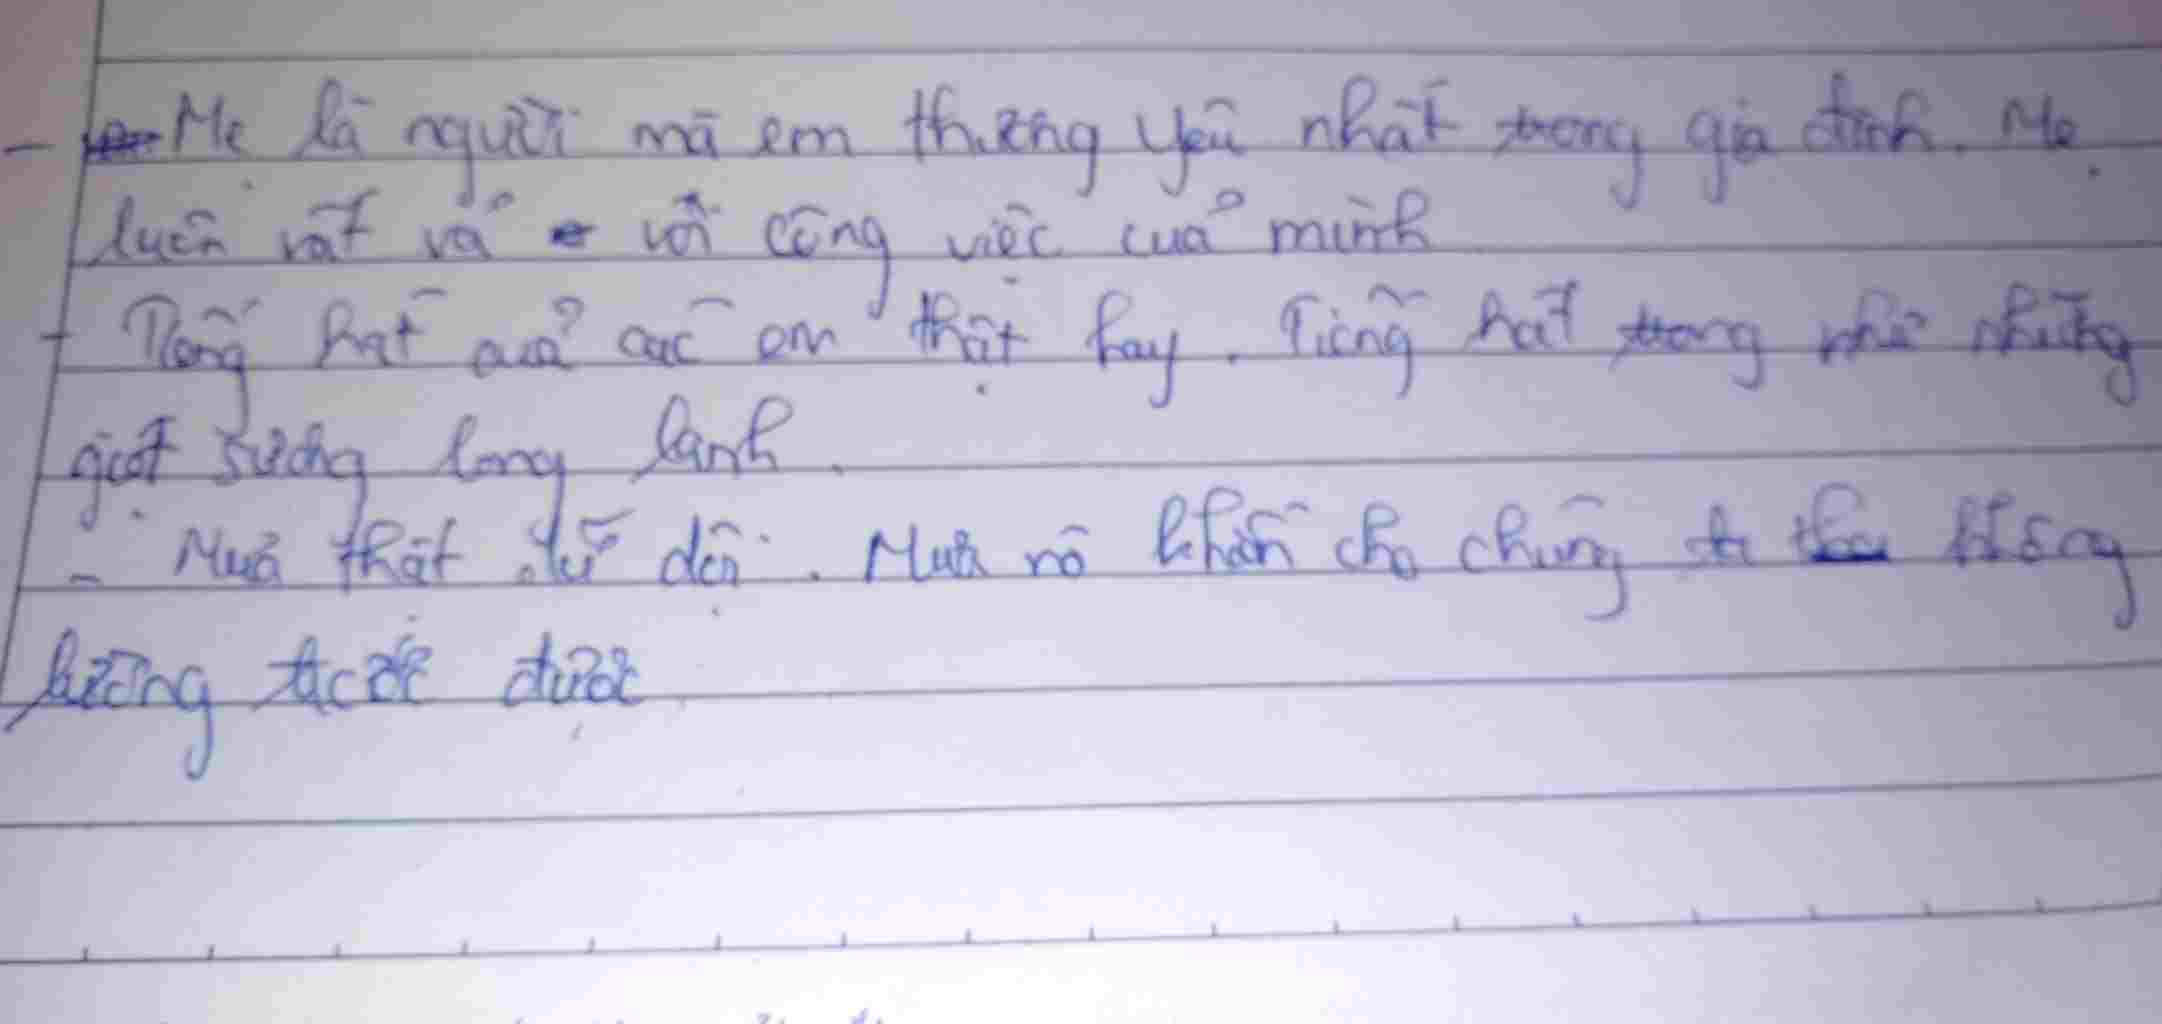 - Mẹ là người mà em thương yêu nhất trong gia đình. Mẹ
luôn rất vả với công việc của mình
- Tiếng hát của các em thật hay. Tiếng hát trong như những
giọt sương long lanh.
- Mưa thật dữ dội. Mưa nó khiến cho chúng ta không
lường trước được